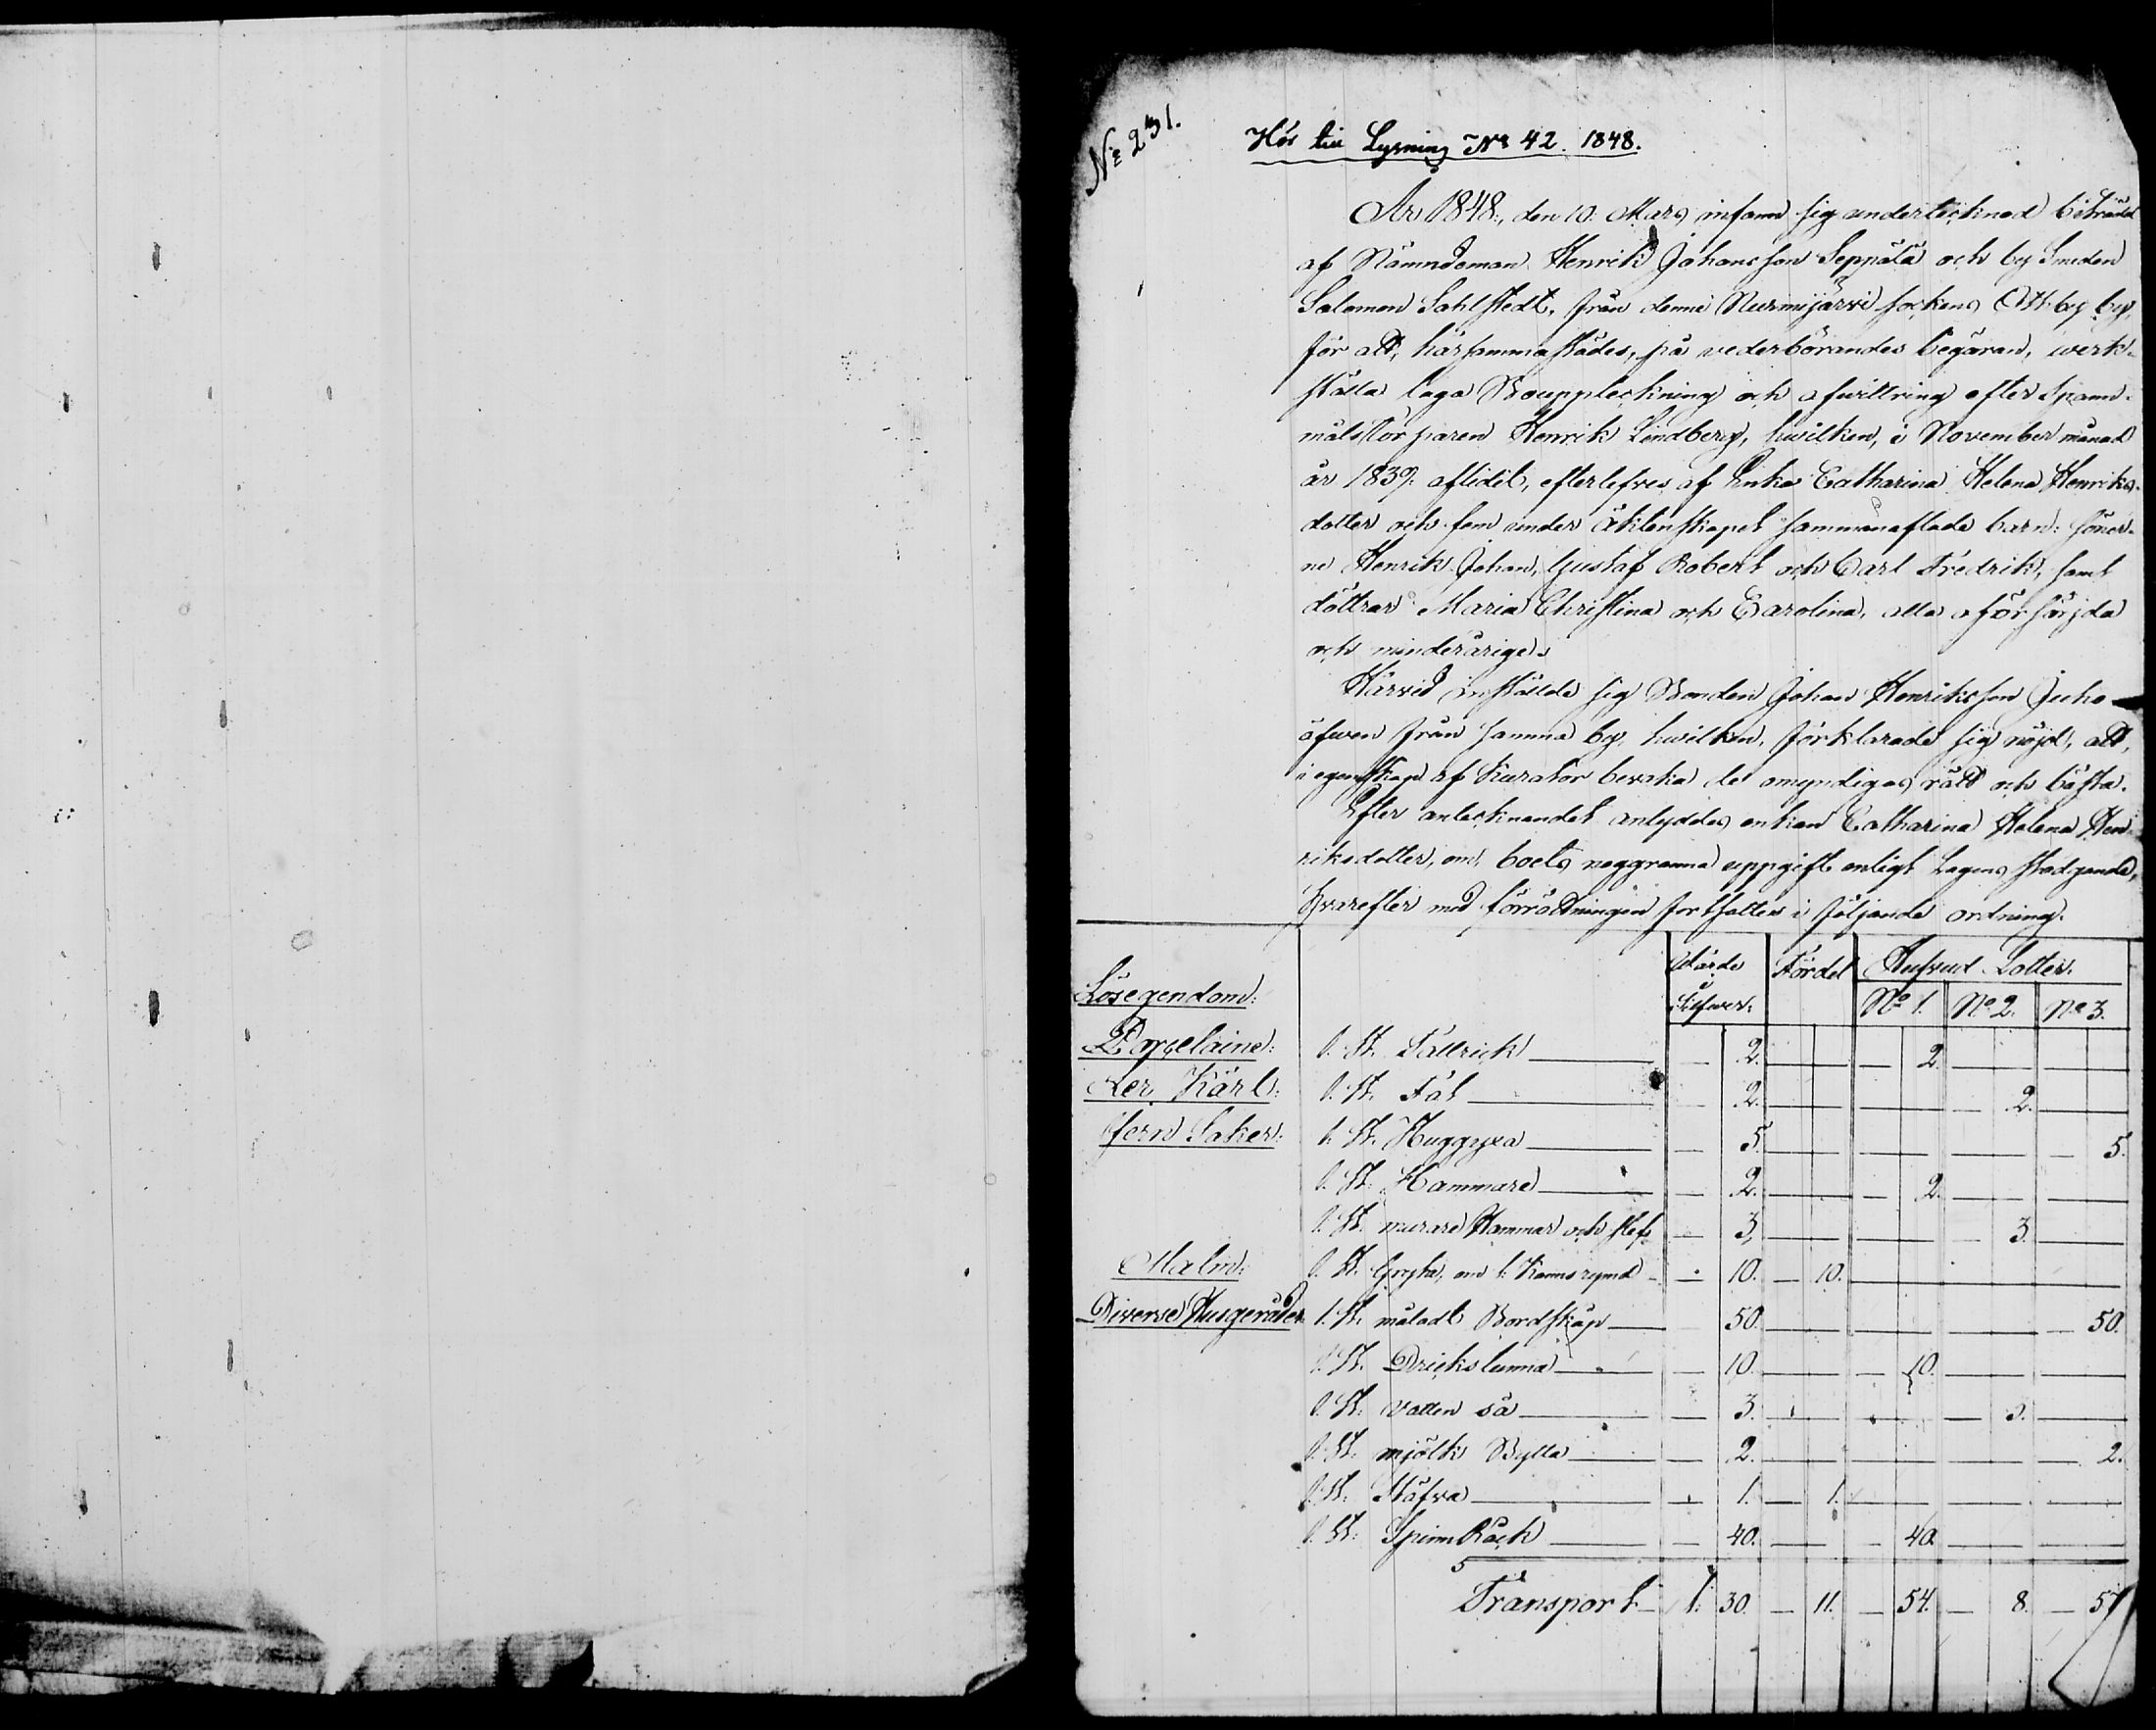 No 231.
Hör till Lysning No 42. 1848.
År 1848, den 10. Mars infann sig undertecknad biträdd
af Nämndeman Henrik Johansson Seppälä och by Smeden
Salomon Sahlstedt, från denne Nurmijärvi sockens Ottby by,
för att, härsammastädes, på vederbörandes begäran, werk-
ställa laga Bouppteckning och afwittring efter Spann-
målstorparen Henrik Lindberg, hwilken, i November månad
år 1839. aflidit, efterlefves af Enka Catharina Helena Henriks-
dotter och fem under äktenskapet sammanaflade barn: söner-
ne Henrik Johan, Gustaf Robert och Carl Fredrik, samt
döttrar Maria Christina och Carolina, alla oförsörjda
och minderåriga.
Härvid inställde sig Bonden Johan Henriksson Juho
äfwen från samma by, hwilken, förklarade sig nöjd, att,
i egenskap af Kurator bevaka de omyndigas rätt och bästa.
Efter antecknandet antyddes enkan Catharina Helena Hen-
riksdotter, om boets noggranna uppgift enligt Lagens stadgande,
hvarefter med förrättningen fortsattes i följande ordning.
Wärde Fördel Hufvud Lotter.
Lösegendom: Silfwer. No 1. No 2. No 3.
Porcelaine: 1. St. Tallrick — 2. — 2.
Ler Kärl: 1. St. Fat — 2. — 2.
Jern Saker: 1. St. Huggyxa — 5. — 5.
1. St. Hammare — 2. — 2.
1. St. murare Hammar och slef — 3. — 3.
Malm: 1. St. Gryta, om 1. Kanns rymd — 10. — 10.
Diverse Husgeråder: 1. St. måladt Bordskåp — 50. — 50.
1. St. Drickstunna — 10. — 10.
1. St. vatten så — 3. — 3.
1. St. mjölk Bytta — 2. — 2.
1. St. Stäfva — 1. — 1.
1. St. Spinn Råck — 40. — 40.
Transport 1. 30. — 11. — 54. — 8. — 57